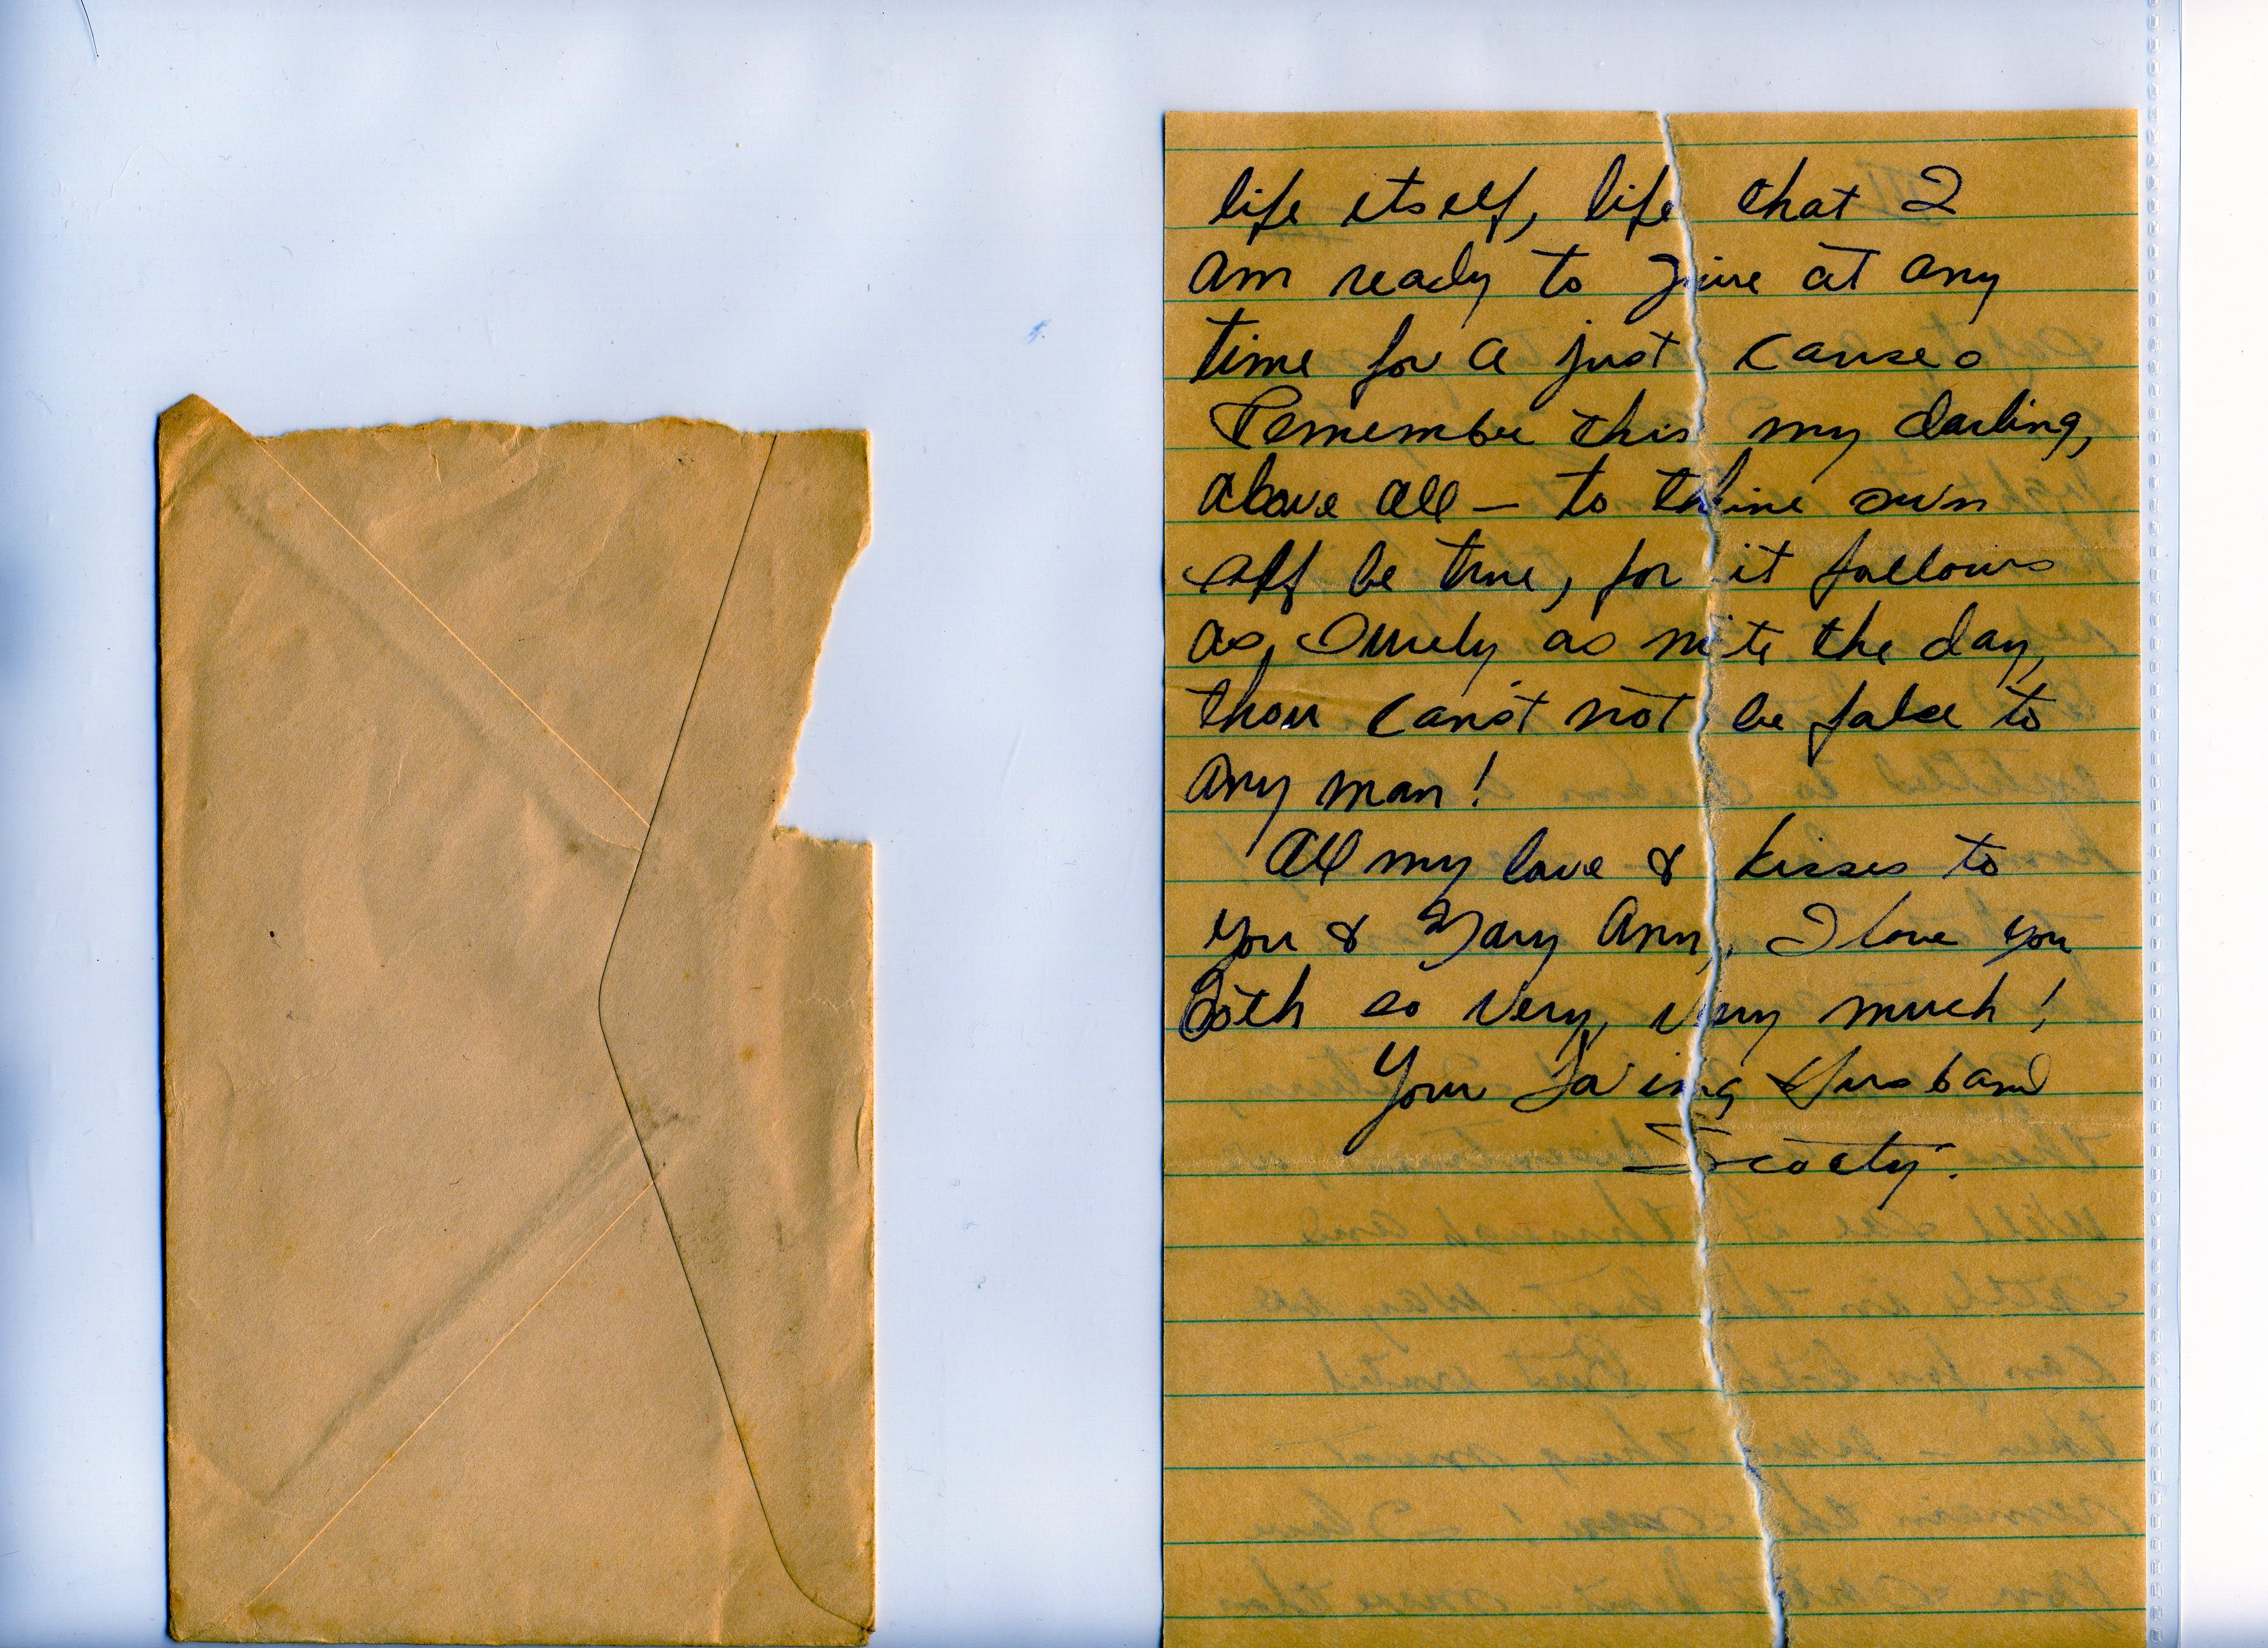 life itself, life that I
am ready to give at any
time for a just cause.
Remember this my darling,
above all – to thine own
self be true, for it follows
as, surely as nite the day,
thou cans't not be false to
any man!
All my love & kisses to
you & Mary Ann, I love you
both so very, very much!
Your Loving Husband
Scotty.